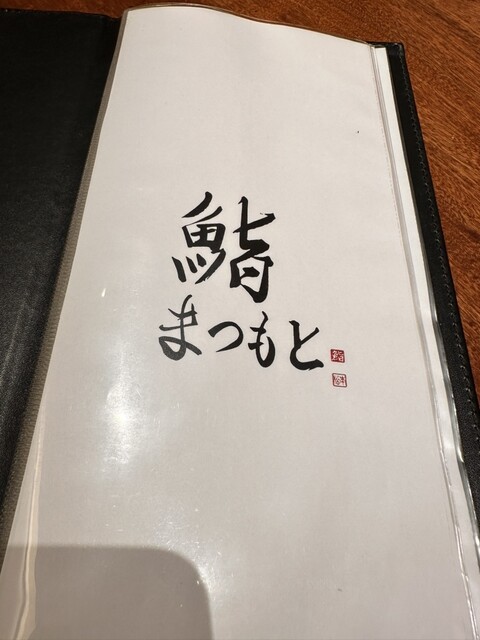 鮨
まつもと